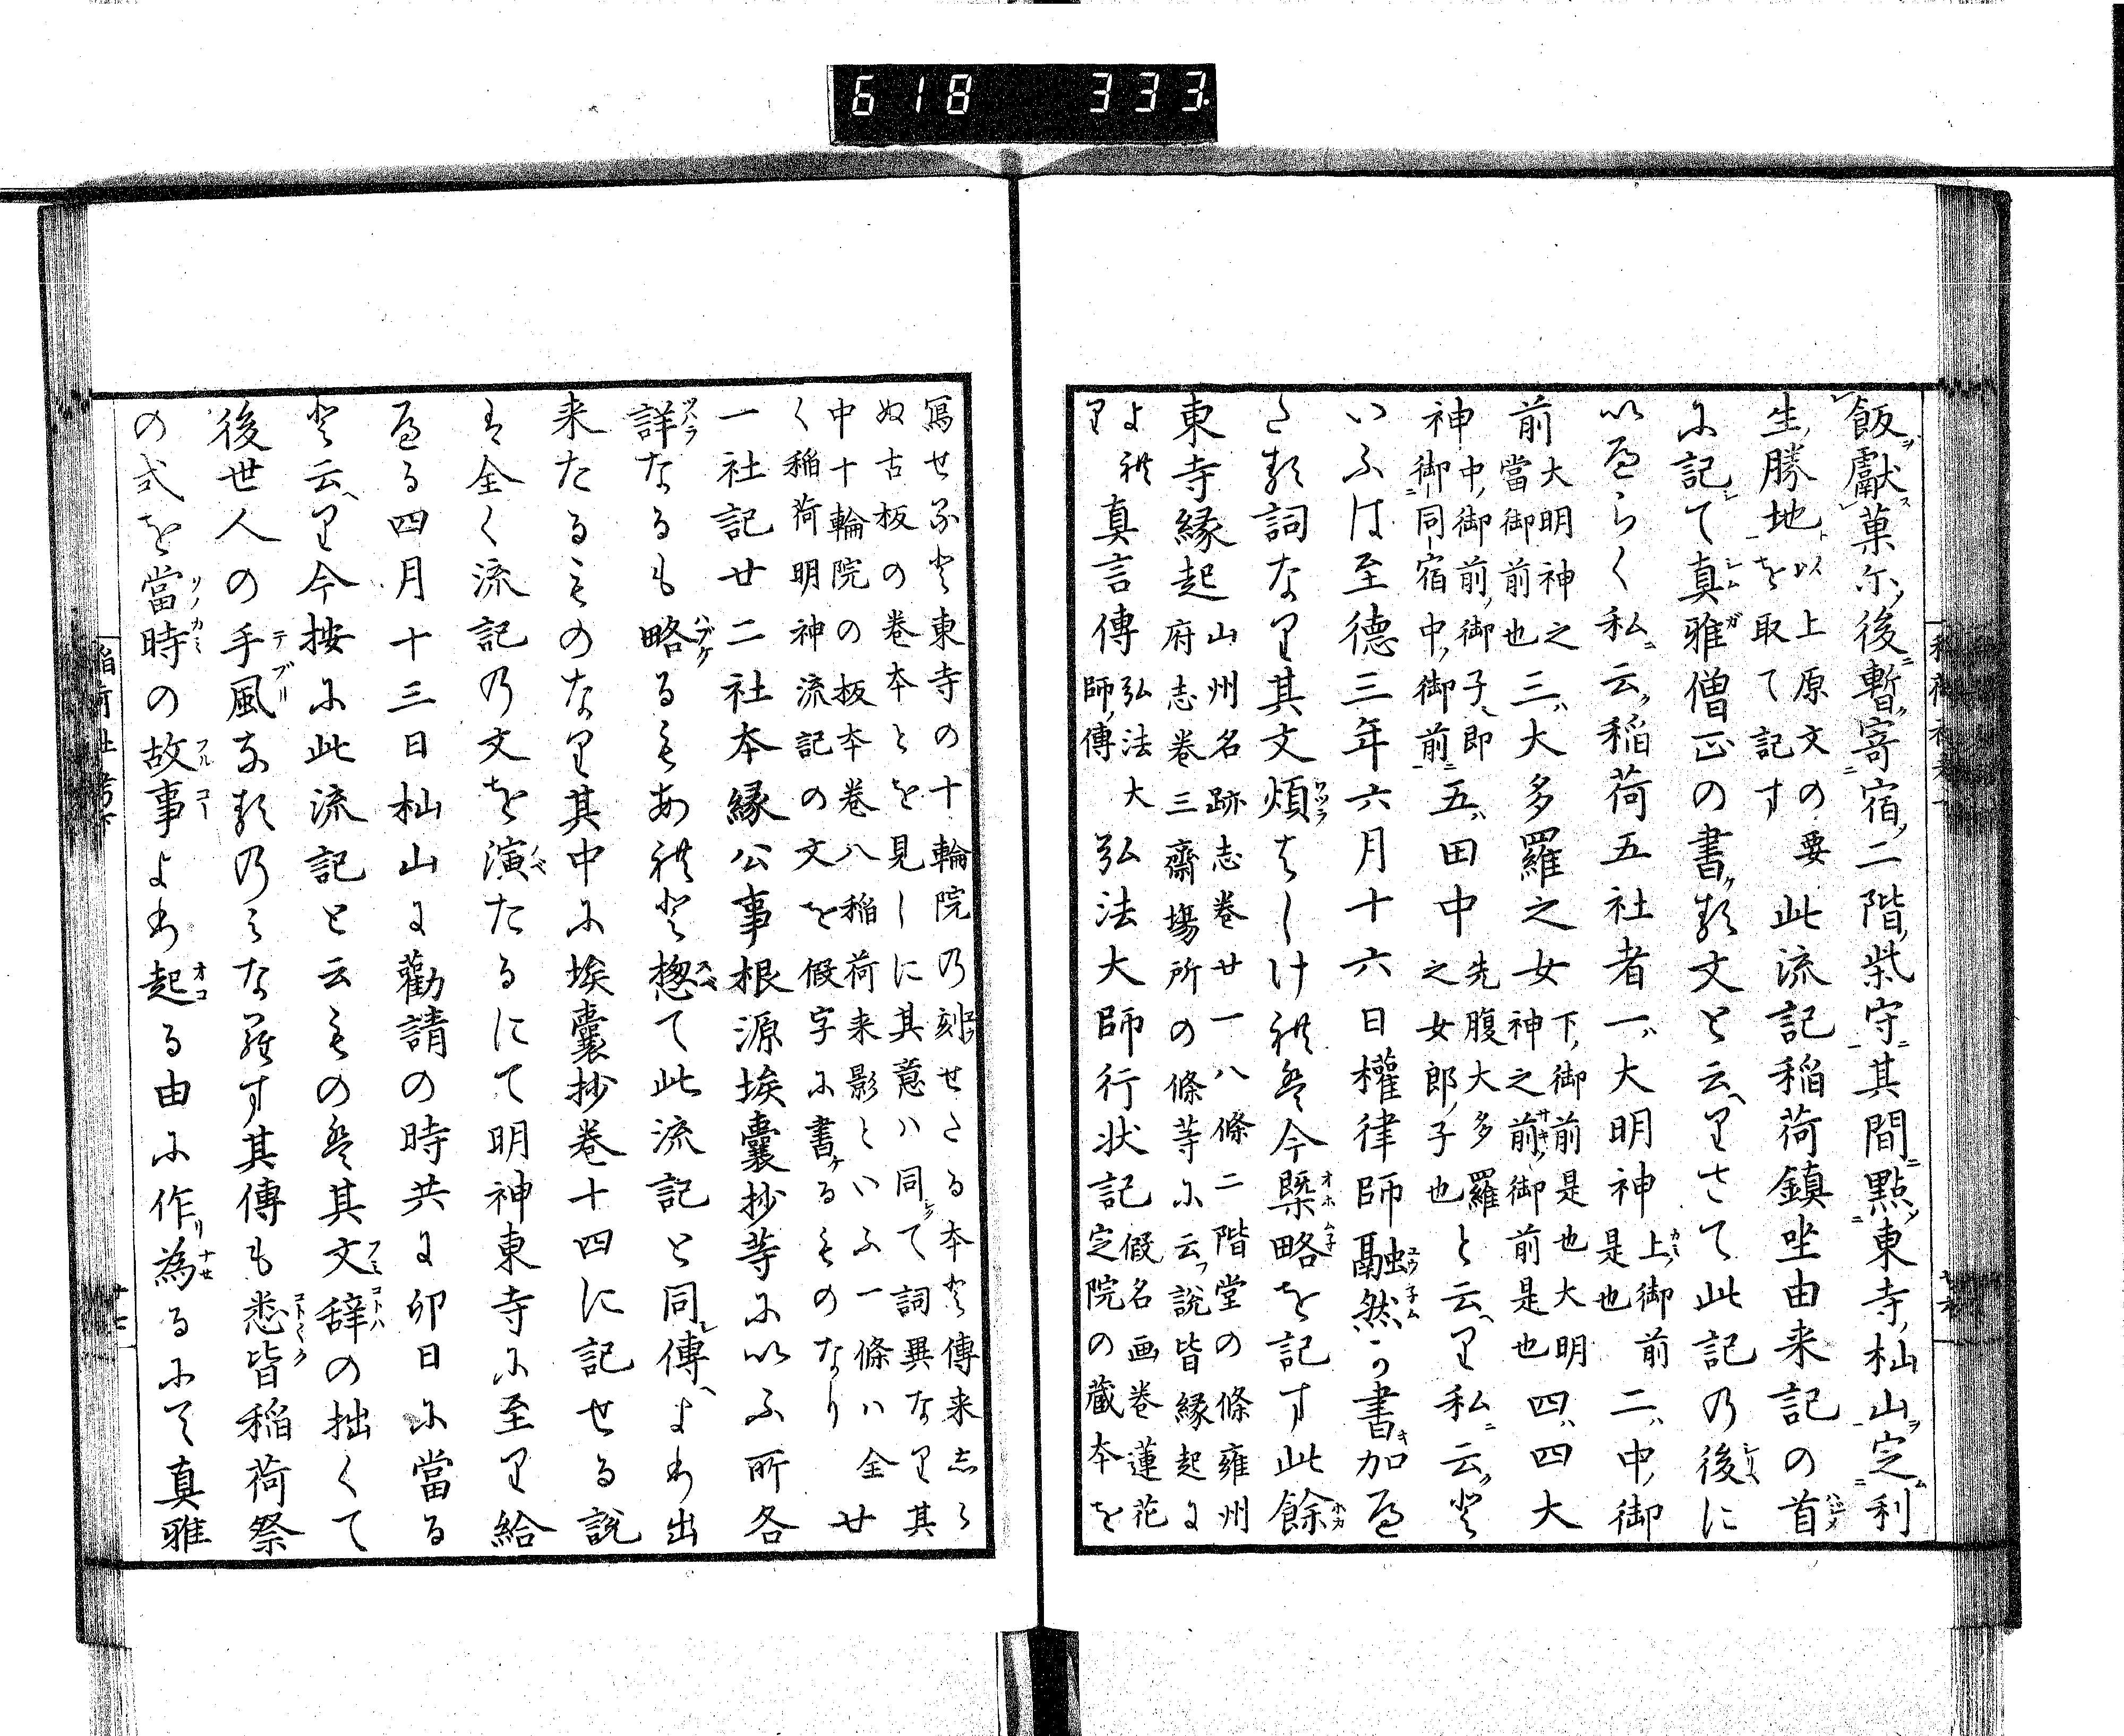 618 333
飯獻菓尓後暫寄宿二階柴守其間點東寺杣山定利
生勝地を取て記す上原文の要此流記稲荷鎮坐由来記の首
に記て真雅僧正の書類文と云りさて此記乃後に
いへらく私云稲荷五社者一大明神上御前是也二中御
前大明神之當御前也三大多羅之女下御前是也大明神之前御前是也四四大
神中御前御子即御同宿中御前五田中先腹大多羅之女郎子也と云り私云と
いふは至徳三年六月十六日權律師融然か書加へ
たる詞なり其文煩はしけれは今槩略を記す此餘
東寺縁起山州名跡志巻廿一八條二階堂の條雍州府志巻三齋場所の條等に云説皆縁起に
より真言傳弘法大師傳弘法大師行状記假名画巻蓮花定院の蔵本を
寫せると東寺の十輪院乃刻せたる本と傳来志
ぬ古板の巻本とを見しに其意ハ同て詞異なり其
中十輪院の板本巻八稲荷来影といふ一條ハ全
く稲荷明神流記の文を假字に書るものなり廿
一社記廿二社本縁公事根源埃囊抄等にいふ所各
詳なるも略るもあれと惣て此流記と同傳より出
来たるものなり其中に埃囊抄巻十四に記せる説
は全く流記乃文を演たるにて明神東寺に至り給
へる四月十三日杣山に勸請の時共に卯日に當る
と云り今按に此流記と云もの其文辞の拙くて
後世人の手風なる乃みならす其傳も悉皆稲荷祭
の式を當時の故事より起る由に作為るにて真雅
稲荷社考下
十七